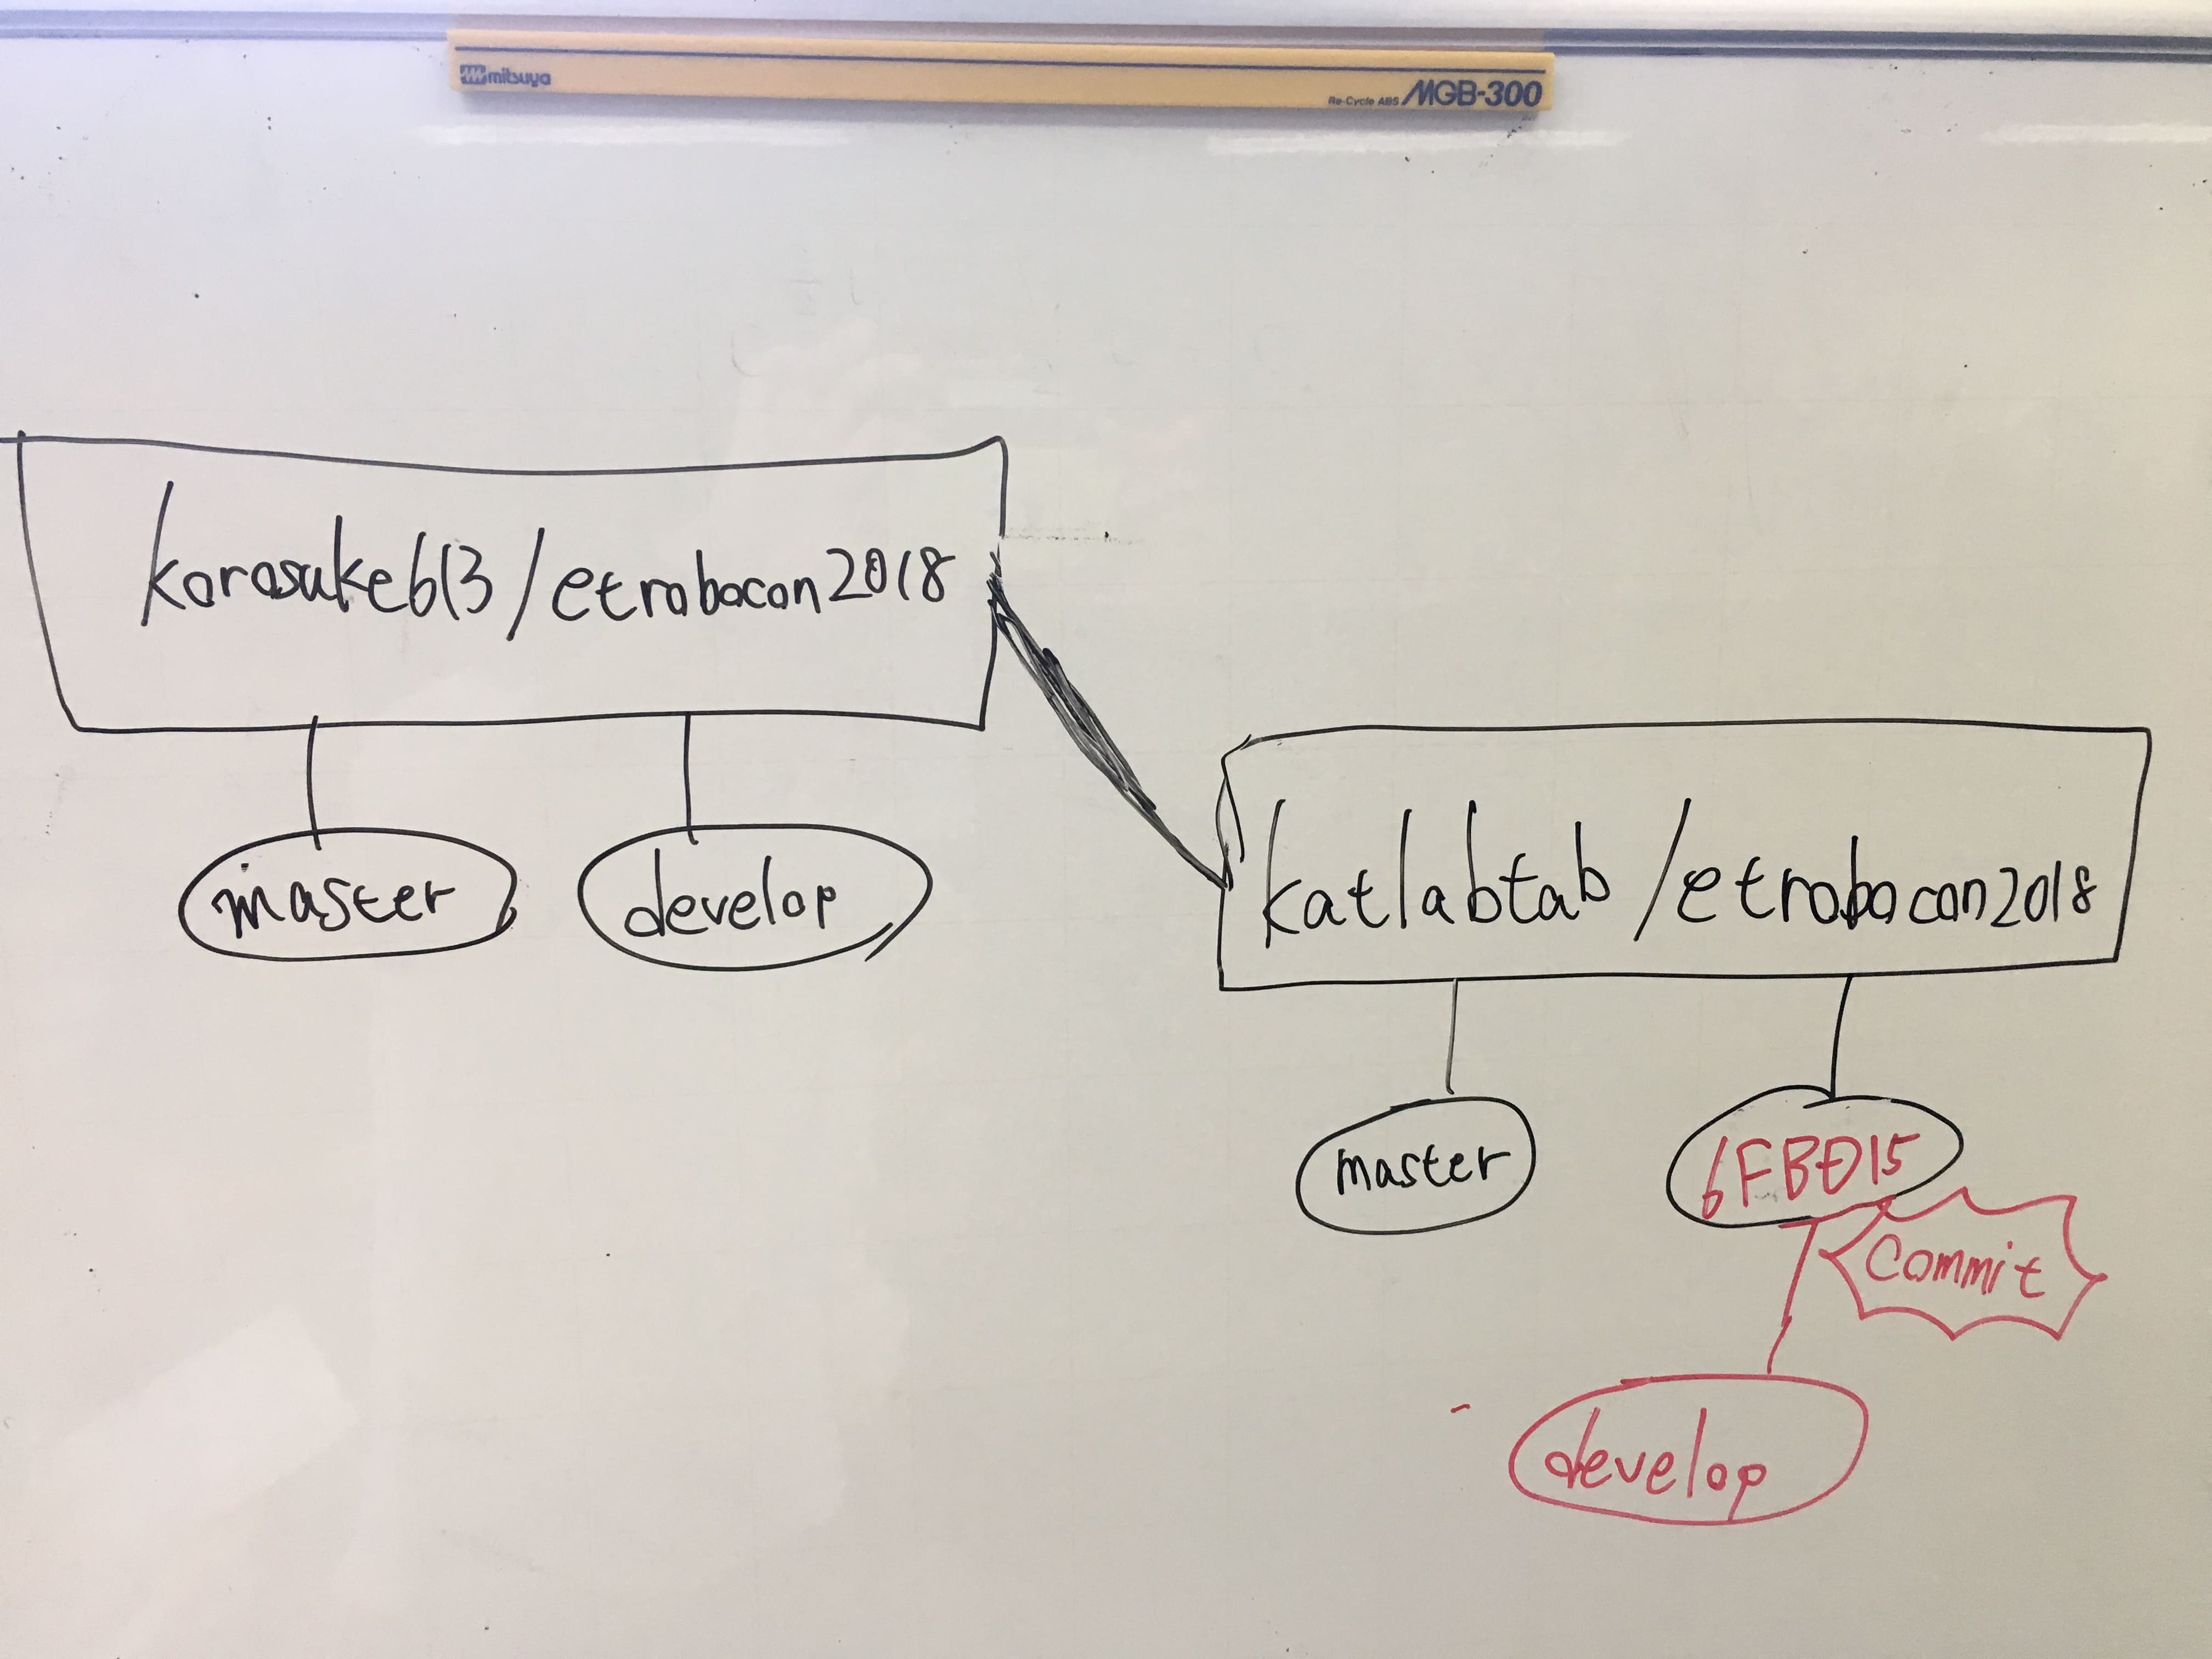 mitsuya
Re-Cycle ABS MGB-300
korosuke613/etrobocon2018
master
develop
katlabtab/etrobocon2018
master
6FBD15
Commit
develop